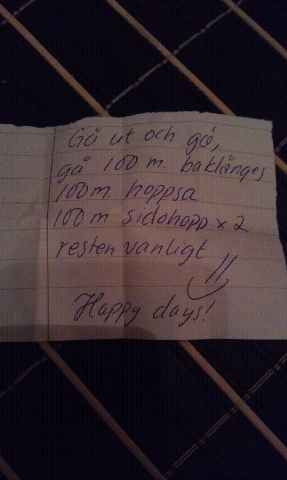 Gå ut och gå,
gå 100 m. baklänges
100 m. hoppsa
100 m sidohopp x 2
resten vanligt
Happy days!